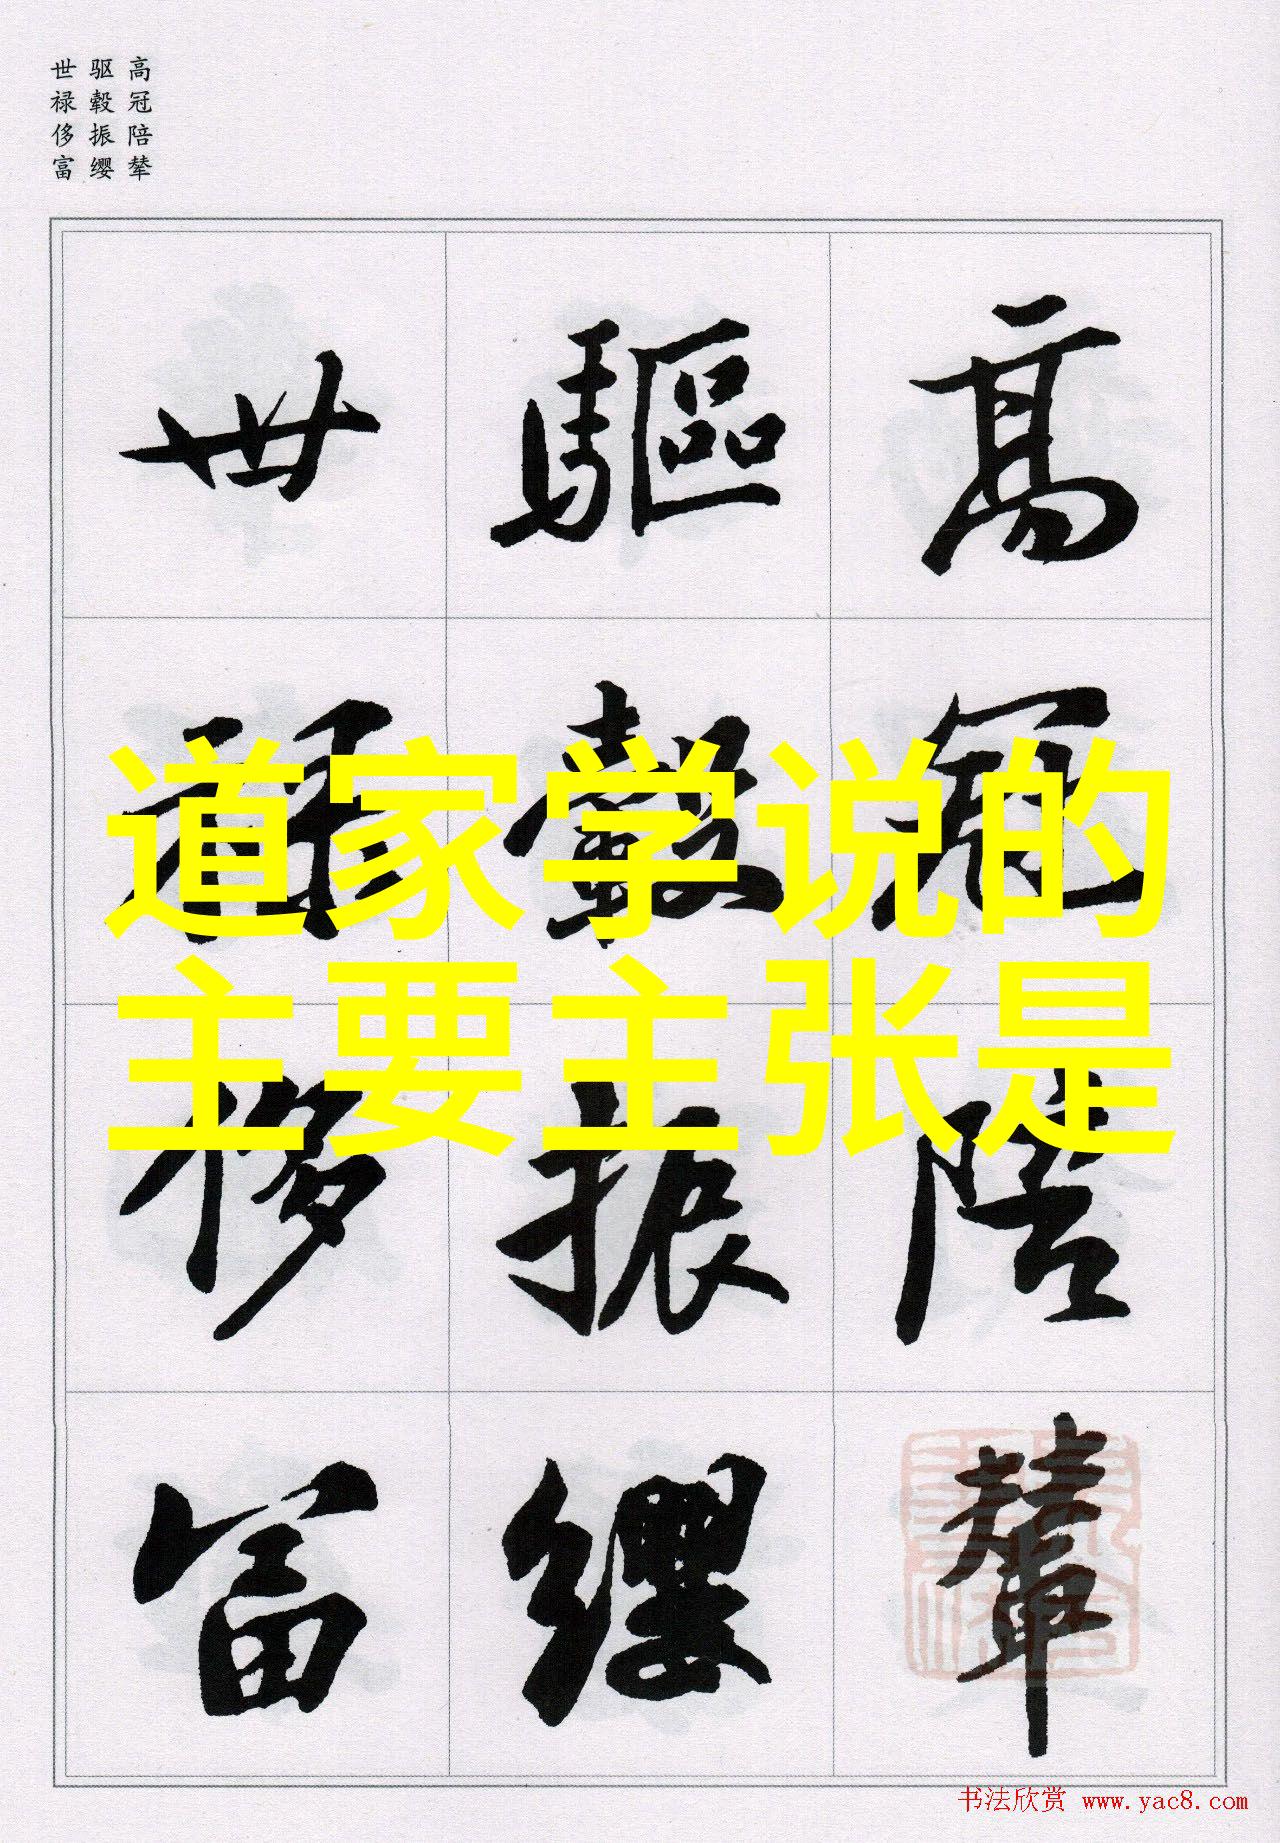 高冠陪辇
驱毂振缨
世禄侈富
高冠陪輦
驅轂振纓
世祿侈富
道家学说的
主要主张是
书法欣赏 www.yac8.com